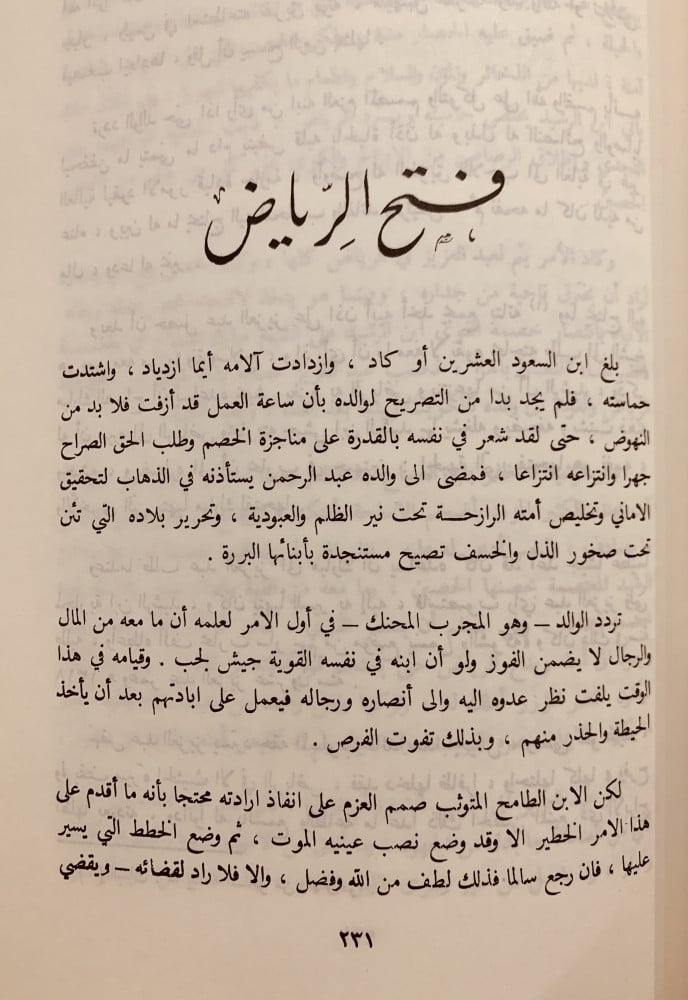 فتح الرّياض
بلغ ابن السعود العشرين أو كاد ، وازدادت آلامه أيما ازدياد ، واشتدت
حماسته ، فلم يجد بدا من التصريح لوالده بأن ساعة العمل قد أزفت فلا بد من
النهوض ، حتى لقد شعر في نفسه بالقدرة على مناجزة الخصم وطلب الحق الصراح
جهرا وانتزاعه انتزاعا ، فمضى الى والده عبد الرحمن يستأذنه في الذهاب لتحقيق
الاماني وتخليص أمته الرازحـــة تحت نير الظلم والعبودية ، وتحرير بلاده التي تئن
تحت صخور الذل والخسف تصيح مستنجدة بأبنائها البررة .
تردد الوالد — وهو المجرب المحنك — في أول الامر لعلمه أن ما معه من المال
والرجال لا يضمن الفوز ولو أن ابنه في نفسه القوية جيش لجب . وقيامه في هذا
الوقت يلفت نظر عدوه اليه والى أنصاره ورجاله فيعمل على ابادتهم بعد أن يأخذ
الحيطة والحذر منهم ، وبذلك تفوت الفرص .
لكن الابن الطامح المتوثب صمم العزم على انفاذ ارادته محتجا بأنه ما أقدم على
هذا الامر الخطير الا وقد وضع نصب عينيه الموت ، ثم وضع الخطط التي يسير
عليها ، فان رجع سالما فذلك لطف من الله وفضل ، والا فلا راد لقضائه — ويقضي
٢٣١